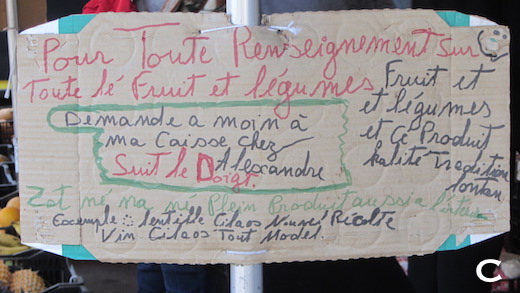 Pour Toute Renseignement Sur
Toute lé Fruit et légumes
Demande a moin à
ma Caisse chez
Alexandre
Suit le Doigt.
Fruit et
et légumes
et Cé Produit
kalité Tradition
lontan
Zot né na ni Plein Produit aussi a l'intérieur
Exemple : lentille Cilaos Nouvé Récolte
Vin Cilaos Tout Model.
C